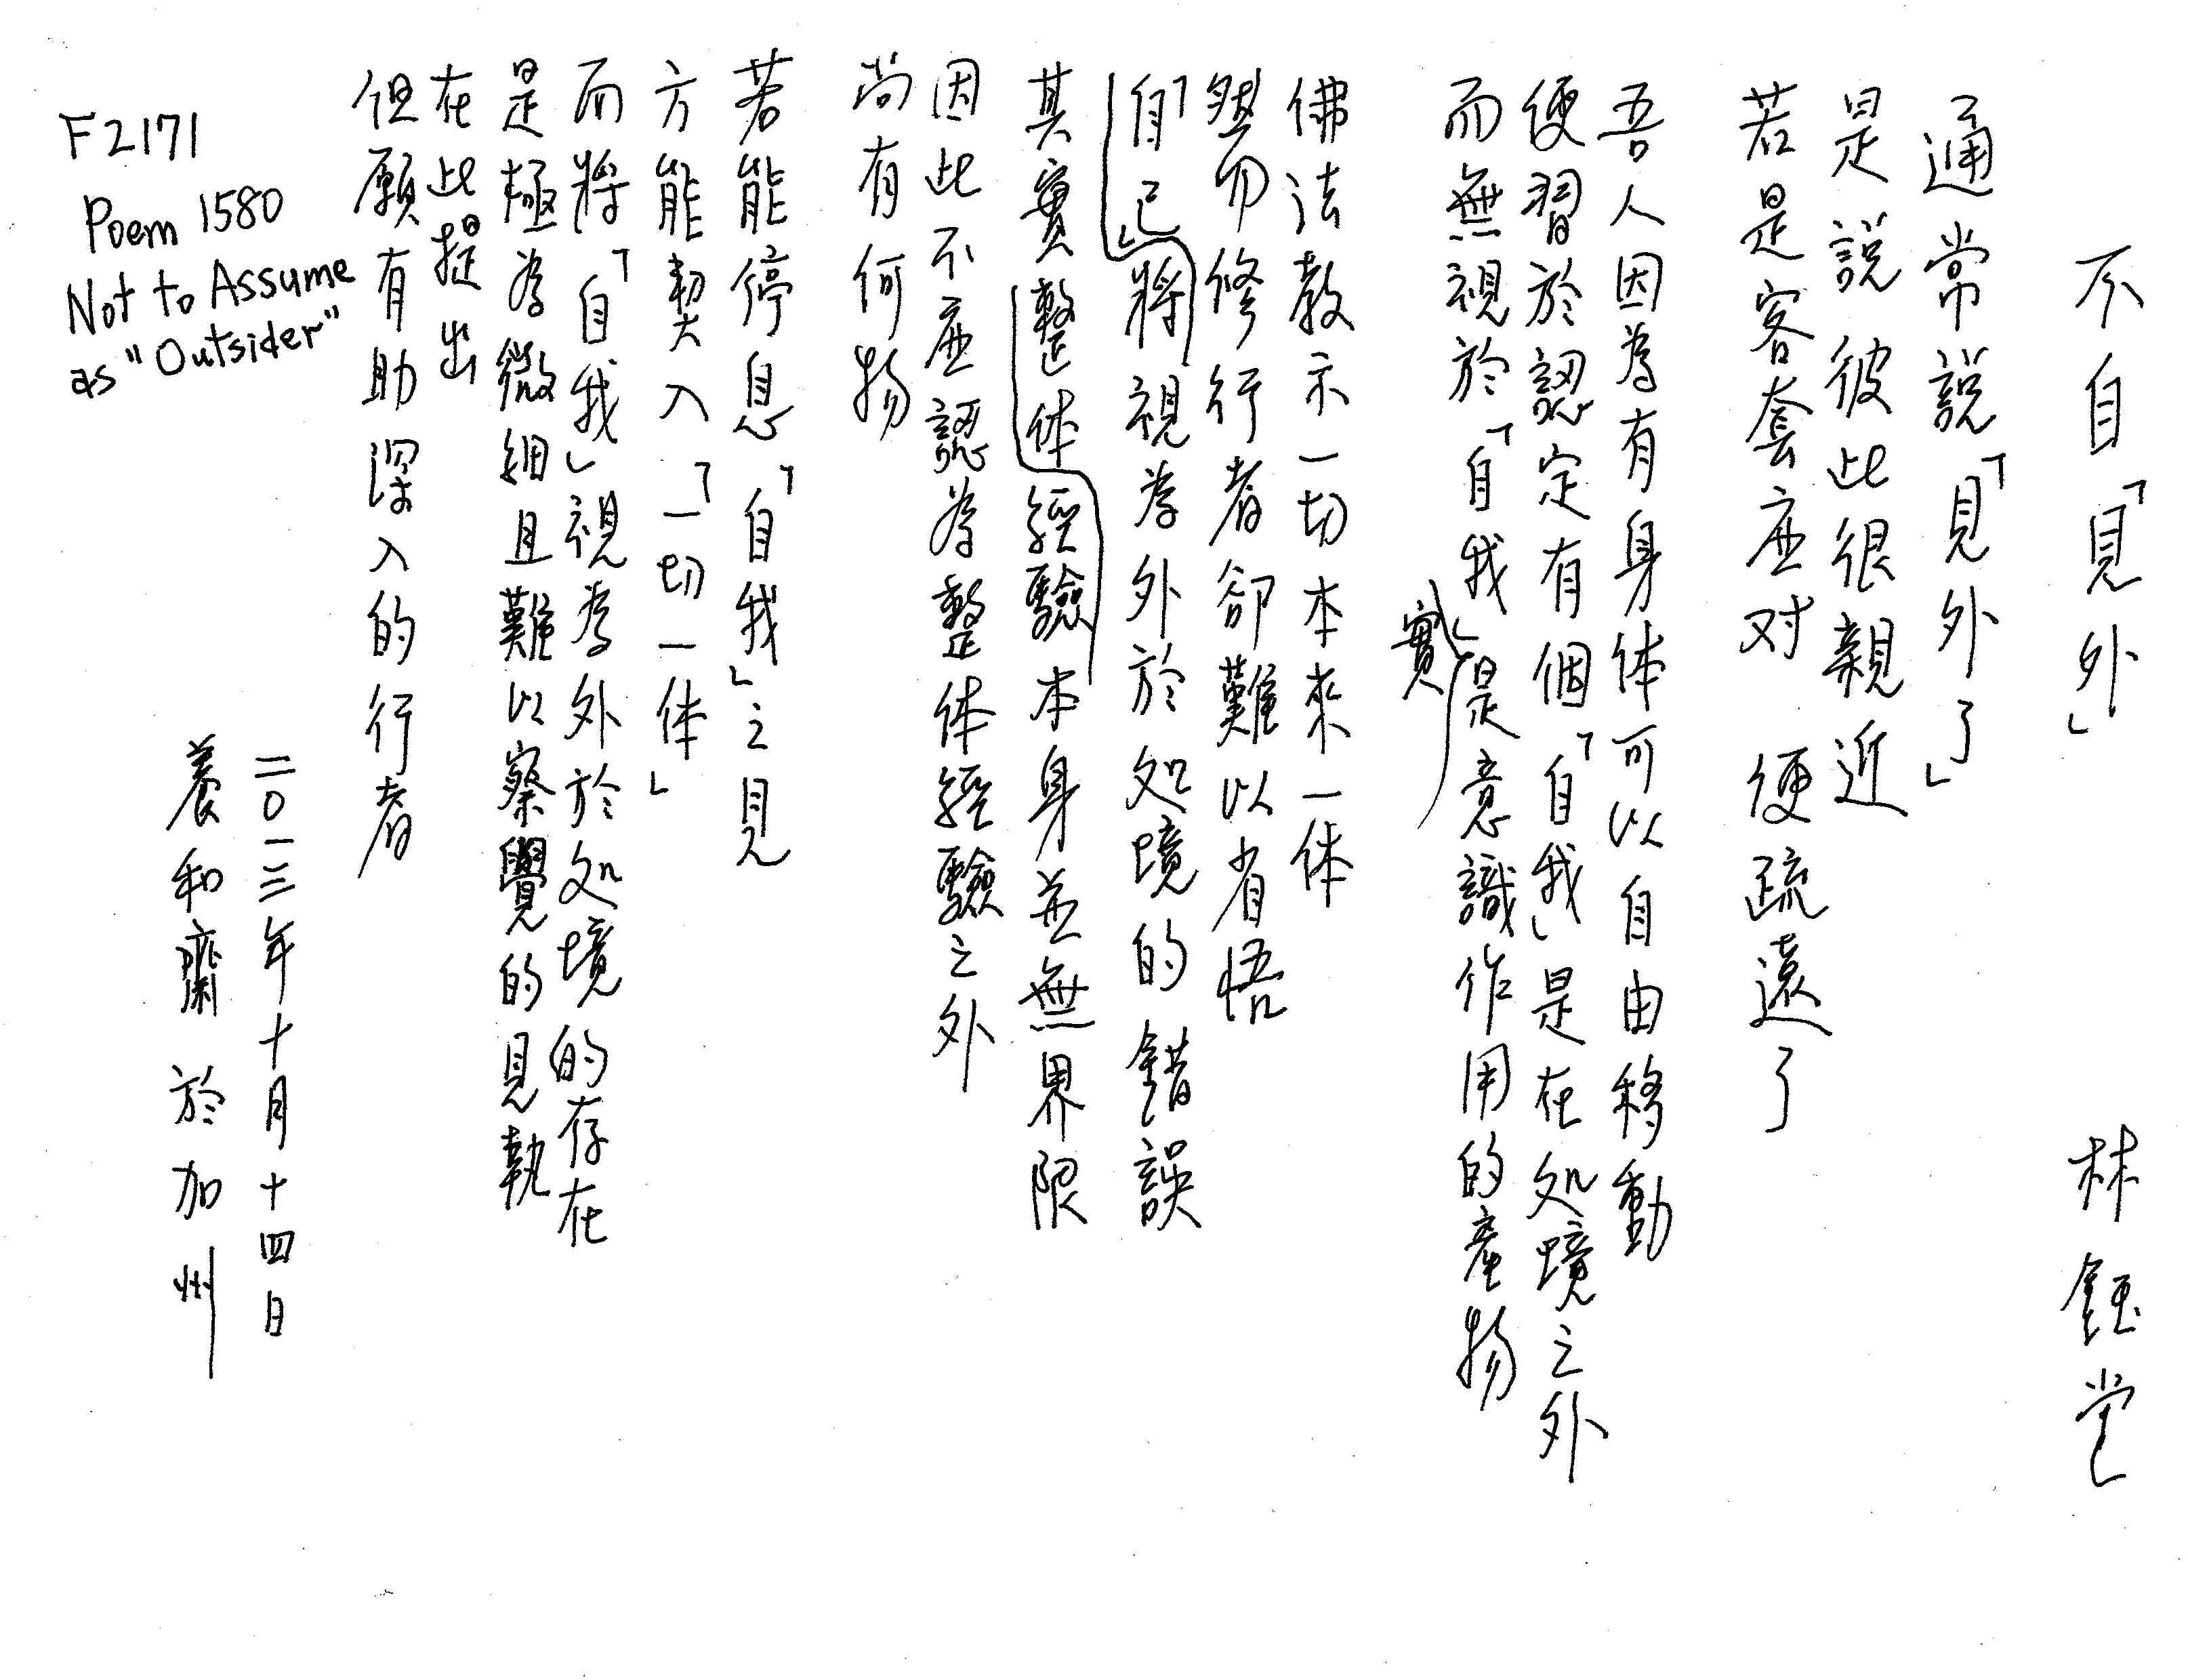 不自「見外」 林鈺堂
通常說「見外了」
是說彼此很親近
若是客套应对 便疏遠了
吾人因為有身体可以自由移動
便習於認定有個「自我」是在处境之外
而無視於「自我」實是意識作用的產物
佛法教示一切本來一体
學佛修行者卻難以省悟
將「自己」視為外於处境的錯誤
其實經驗整体本身並無界限
因此不应認為整体經驗之外
尚有何物
若能停息「自我」之見
方能契入「一切一体」
而將「自我」視為外於处境的存在
是極為微細且難以察覺的見執
在此提出
但願有助深入的行者
二〇一三年十月十四日
養和齋 於加州
F2171
Poem 1580
Not to Assume
as "Outsider"